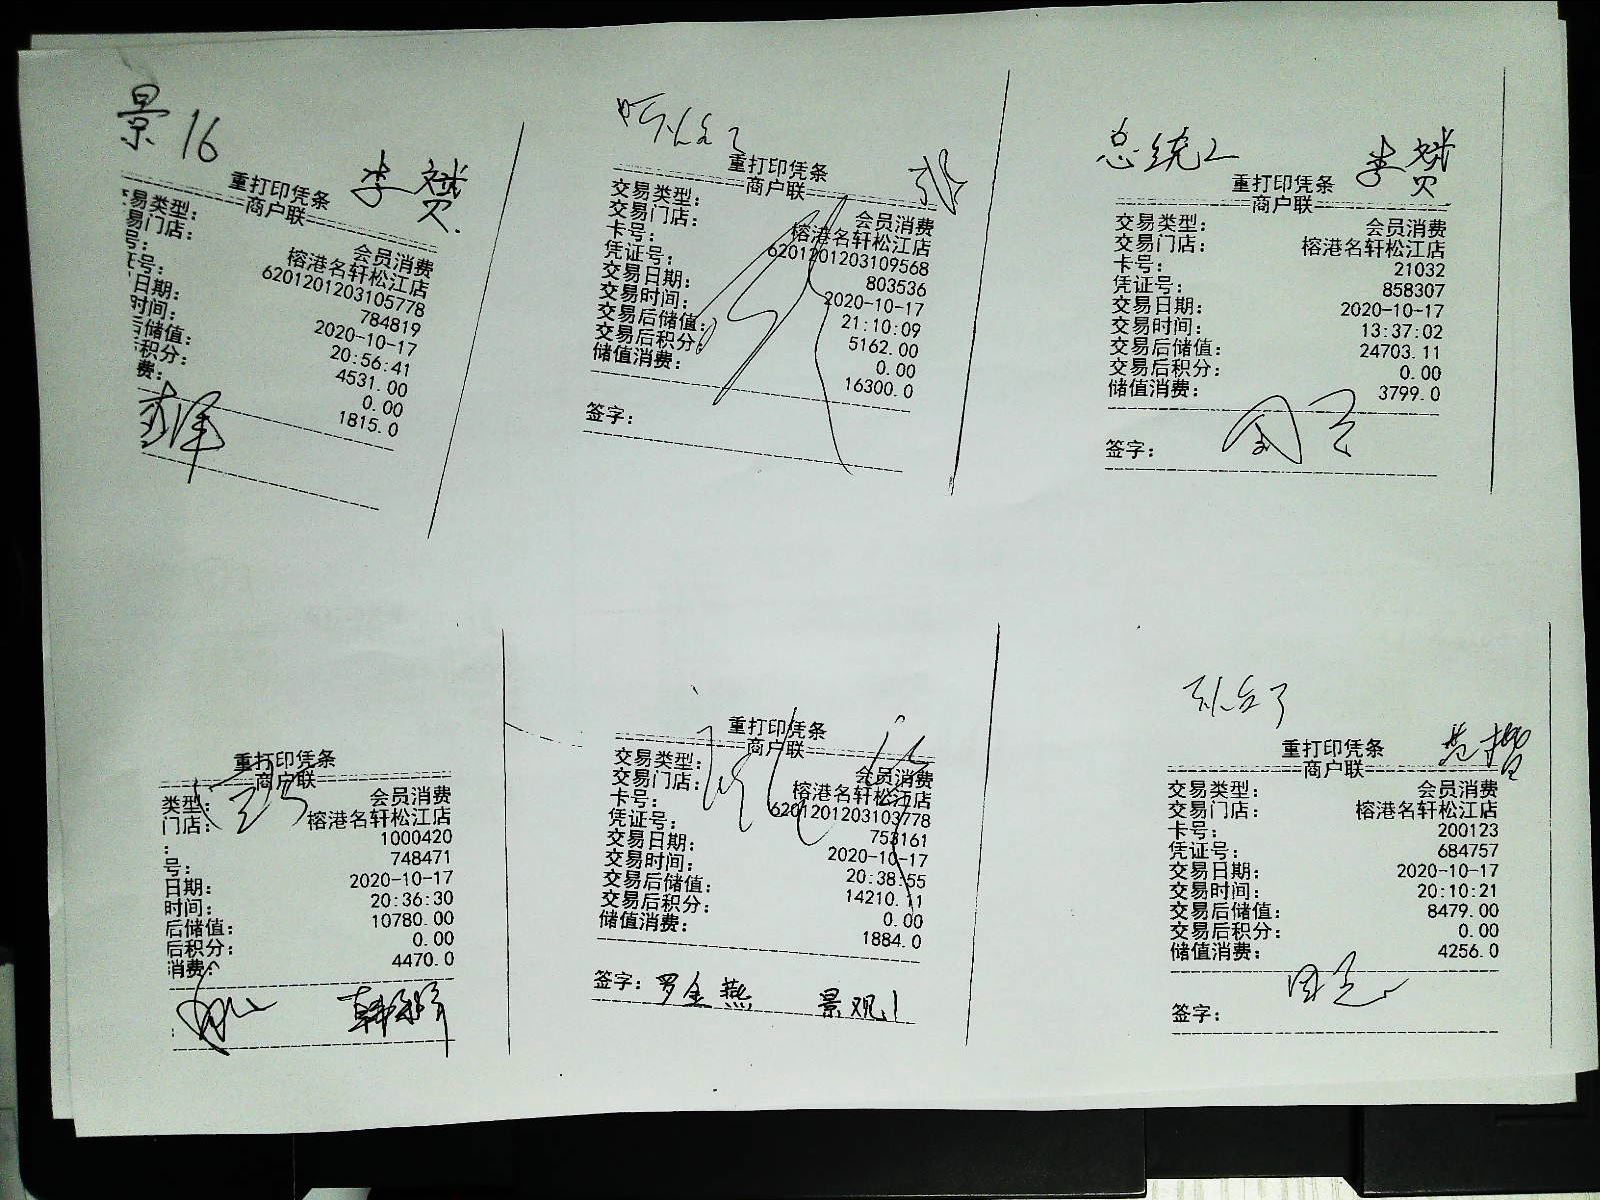 景16
李赟
重打印凭条
商户联
易类型：
会员消费
易门店：
榕港名轩松江店
号：
6201201203105778
证号：
784819
日期：
2020-10-17
时间：
20:56:41
后储值：
4531.00
后积分：
0.00
费：
1815.0
重打印凭条
商户联
交易类型：
会员消费
交易门店：
榕港名轩松江店
卡号：
6201201203109568
凭证号：
803536
交易日期：
2020-10-17
交易时间：
21:10:09
交易后储值：
5162.00
交易后积分：
0.00
储值消费：
16300.0
签字：
总统2
李赟
重打印凭条
商户联
交易类型：
会员消费
交易门店：
榕港名轩松江店
卡号：
21032
凭证号：
858307
交易日期：
2020-10-17
交易时间：
13:37:02
交易后储值：
24703.11
交易后积分：
0.00
储值消费：
3799.0
签字：
重打印凭条
商户联
类型：
会员消费
门店：
榕港名轩松江店
：
1000420
号：
748471
日期：
2020-10-17
时间：
20:36:30
后储值：
10780.00
后积分：
0.00
消费：
4470.0
重打印凭条
商户联
交易类型：
会员消费
交易门店：
榕港名轩松江店
卡号：
6201201203103778
凭证号：
753161
交易日期：
2020-10-17
交易时间：
20:38:55
交易后储值：
14210.11
交易后积分：
0.00
储值消费：
1884.0
签字：罗金燕 景观1
重打印凭条
商户联
交易类型：
会员消费
交易门店：
榕港名轩松江店
卡号：
200123
凭证号：
684757
交易日期：
2020-10-17
交易时间：
20:10:21
交易后储值：
8479.00
交易后积分：
0.00
储值消费：
4256.0
签字：